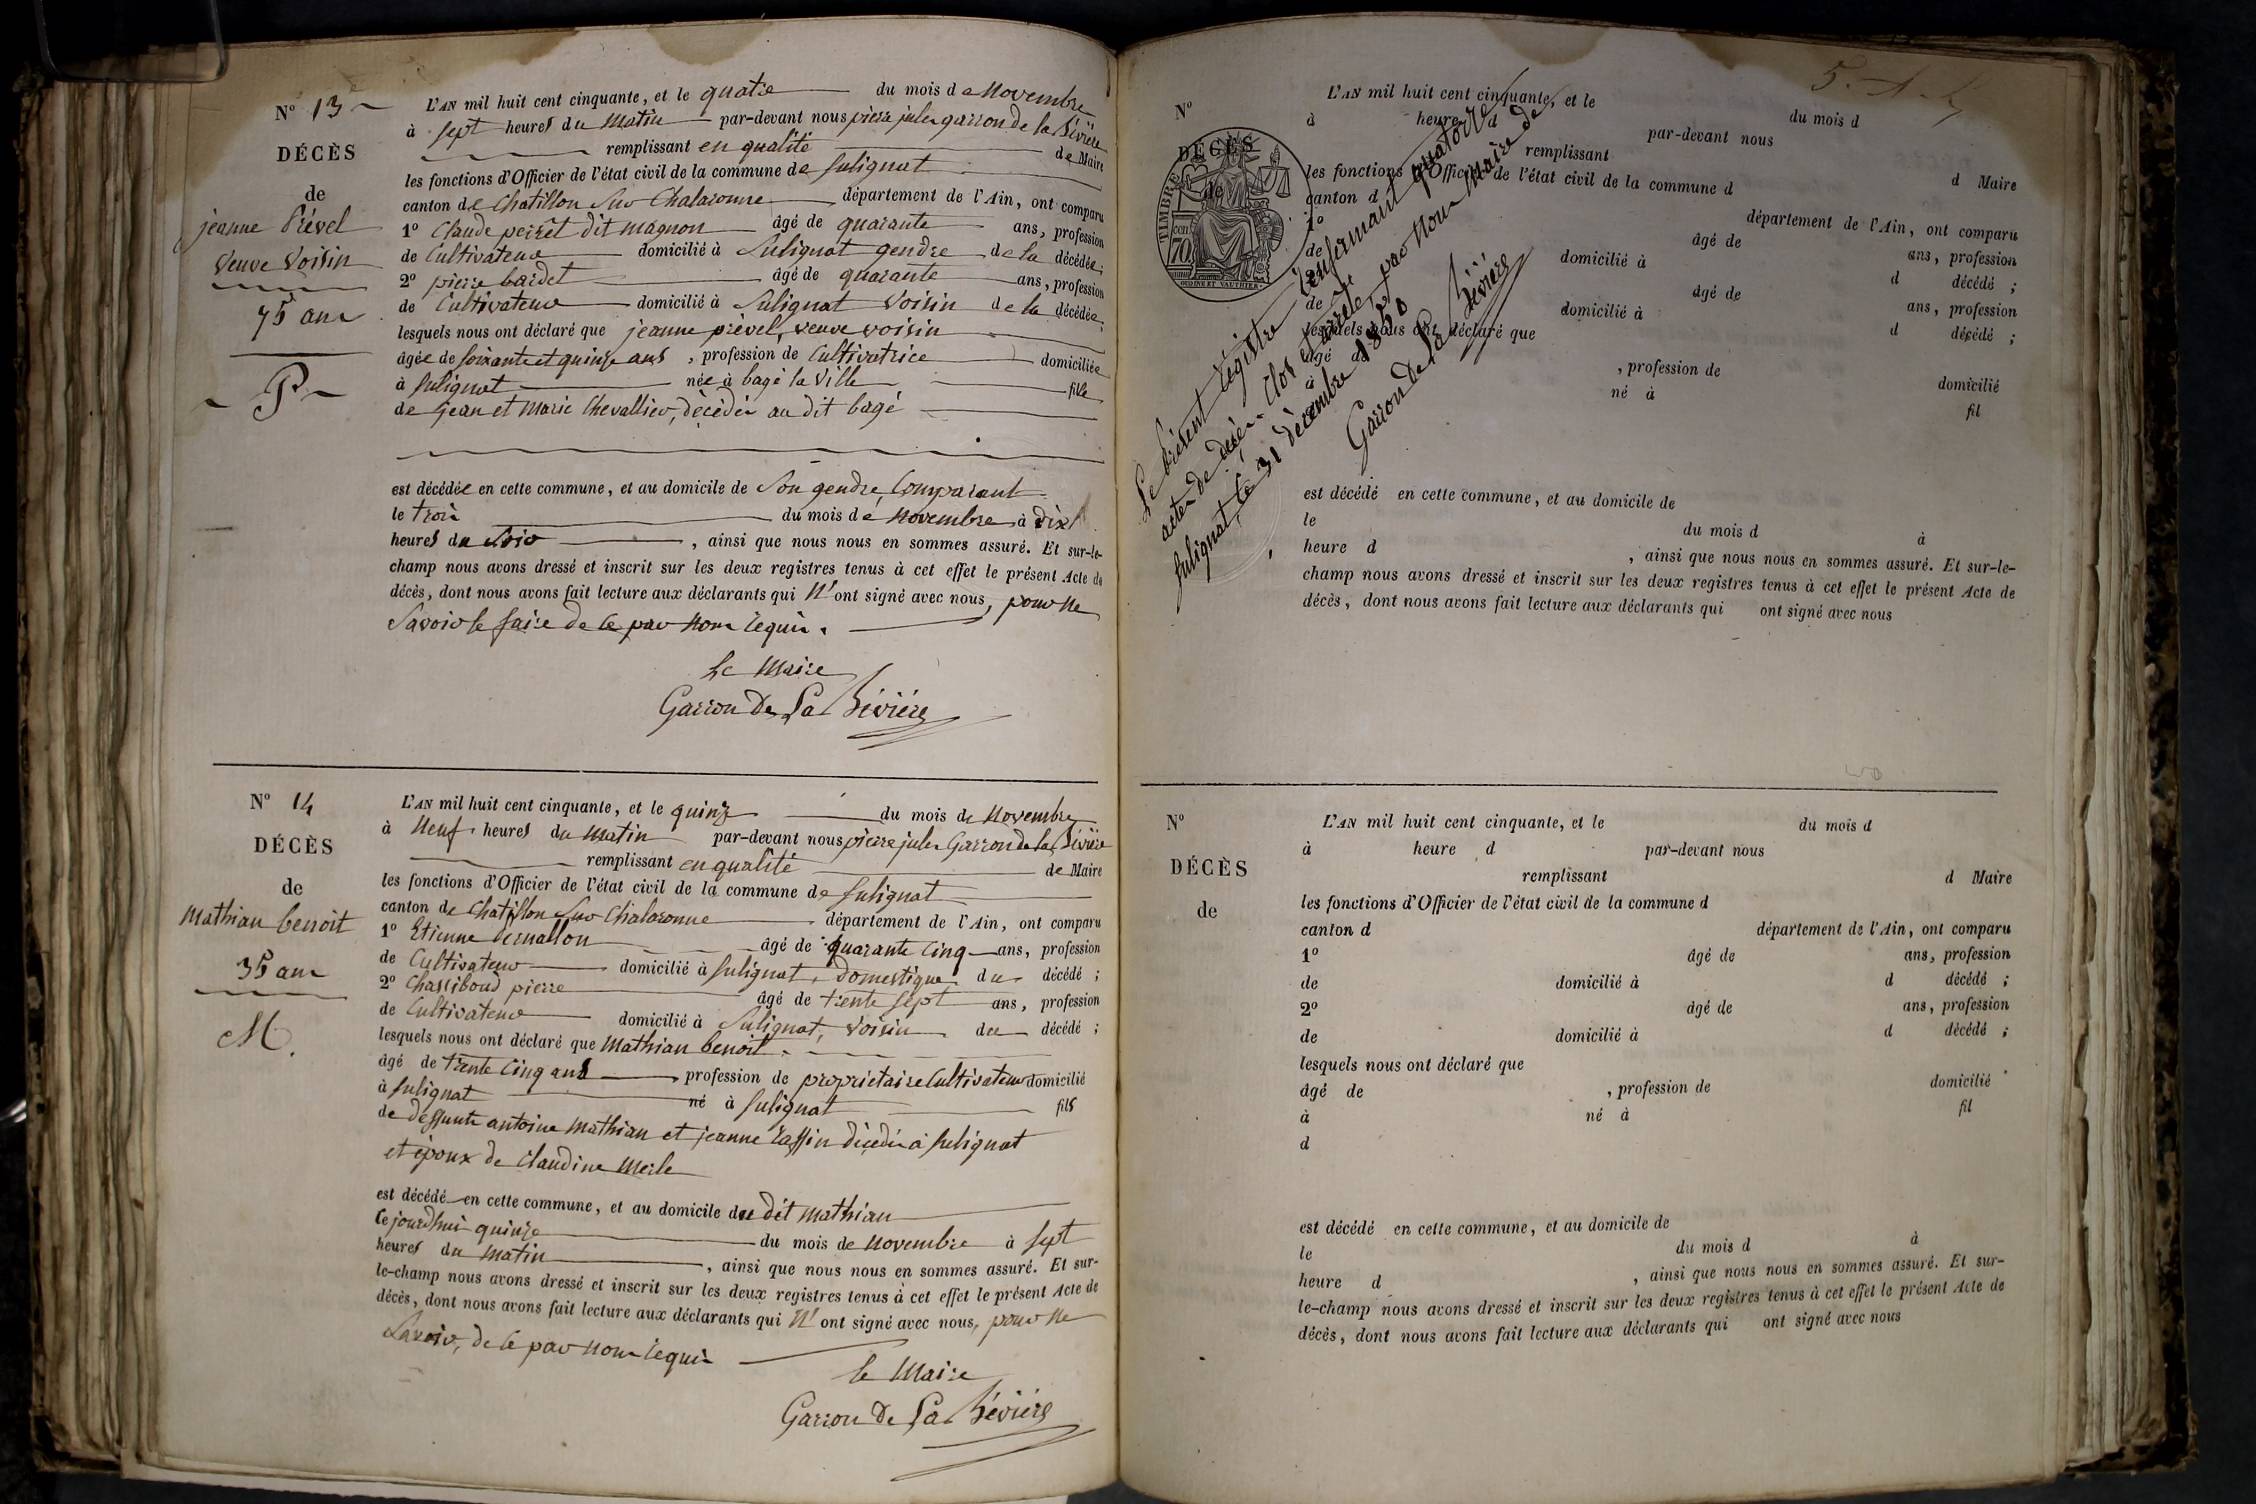 N° 13
DÉCÈS
de
jeanne Prével
Veuve Voisin
75 ans
P
L'AN mil huit cent cinquante, et le quatre du mois de Novembre
à sept heures du Matin par-devant nous pierre jules garron de la Bévière
remplissant en qualité de Maire
les fonctions d'Officier de l'état civil de la commune de Sulignat
canton de Chatillon Sur Chalaronne département de l'Ain, ont comparu
1° Claude perret dit magnon âgé de quarante ans, profession
de Cultivateur domicilié à Sulignat gendre de la décédée;
2° pierre bardet âgé de quarante ans, profession
de Cultivateur domicilié à Sulignat Voisin de la décédée;
lesquels nous ont déclaré que jeanne prével, veuve voisin
âgée de soixante et quinze ans, profession de Cultivatrice domiciliée
à Sulignat née à bagé la Ville fille
de Jean et Marie Chevallier, décédés au dit bagé
est décédée en cette commune, et au domicile de Son gendre, Comparant
le trois du mois de Novembre à dix
heures du Soir, ainsi que nous nous en sommes assuré. Et sur-le-
champ nous avons dressé et inscrit sur les deux registres tenus à cet effet le présent Acte de
décès, dont nous avons fait lecture aux déclarants qui N'ont signé avec nous, pour ne
Savoir le faire de ce par Nous requis.
Le Maire
Garron De La Bévière
N° 14
DÉCÈS
de
Mathian benoit
35 ans
M.
L'AN mil huit cent cinquante, et le quinze du mois de Novembre
à Neuf heures du Matin par-devant nous pierre jules Garron de la Bévière
remplissant en qualité de Maire
les fonctions d'Officier de l'état civil de la commune de Sulignat
canton de Chatillon Sur Chalaronne département de l'Ain, ont comparu
1° Etienne âgé de quarante Cinq ans, profession
de Cultivateur domicilié à Sulignat, domestique du décédé;
2° pierre âgé de trente Sept ans, profession
de Cultivateur domicilié à Sulignat, Voisin du décédé;
lesquels nous ont déclaré que Mathian benoit
âgé de trente Cinq ans profession de propriétaire Cultivateur domicilié
à Sulignat né à Sulignat fils
de deffunts antoine Mathian et jeanne décédés à Sulignat
et époux de Claudine Merle
est décédé en cette commune, et au domicile du dit Mathian
Cejourdhui quinze du mois de Novembre à Sept
heures du Matin, ainsi que nous nous en sommes assuré. Et sur-
le-champ nous avons dressé et inscrit sur les deux registres tenus à cet effet le présent Acte de
décès, dont nous avons fait lecture aux déclarants qui N'ont signé avec nous, pour ne
Savoir, de ce par Nous requis
le Maire
Garron De La Bévière
N°
DÉCÈS
de
TIMBRE
70
OUDINÉ ET VAUTHIER
L'AN mil huit cent cinquante, et le du mois d
à heure d par-devant nous
remplissant d Maire
les fonctions d'Officier de l'état civil de la commune d
canton d département de l'Ain, ont comparu
1° âgé de ans, profession
de domicilié à d décédé;
2° âgé de ans, profession
de domicilié à d décédé;
lesquels nous ont déclaré que
âgé de, profession de domicilié
à né à fil
Le présent régistre renfermant quatorze
actes de décès Clos et arrêté par Nous Maire de
Sulignat, le 31 décembre 1850
Garron De La Bévière
est décédé en cette commune, et au domicile de
le du mois d à
heure d, ainsi que nous nous en sommes assuré. Et sur-le-
champ nous avons dressé et inscrit sur les deux registres tenus à cet effet le présent Acte de
décès, dont nous avons fait lecture aux déclarants qui ont signé avec nous
N°
DÉCÈS
de
L'AN mil huit cent cinquante, et le du mois d
à heure d par-devant nous
remplissant d Maire
les fonctions d'Officier de l'état civil de la commune d
canton d département de l'Ain, ont comparu
1° âgé de ans, profession
de domicilié à d décédé;
2° âgé de ans, profession
de domicilié à d décédé;
lesquels nous ont déclaré que
âgé de, profession de domicilié
à né à fil
d
est décédé en cette commune, et au domicile de
le du mois d à
heure d, ainsi que nous nous en sommes assuré. Et sur-
le-champ nous avons dressé et inscrit sur les deux registres tenus à cet effet le présent Acte de
décès, dont nous avons fait lecture aux déclarants qui ont signé avec nous